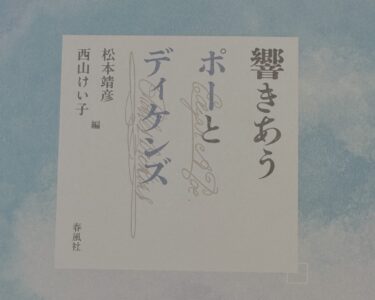 響きあう
ポーと
ディケンズ
松本靖彦
西山けい子
編
春風社